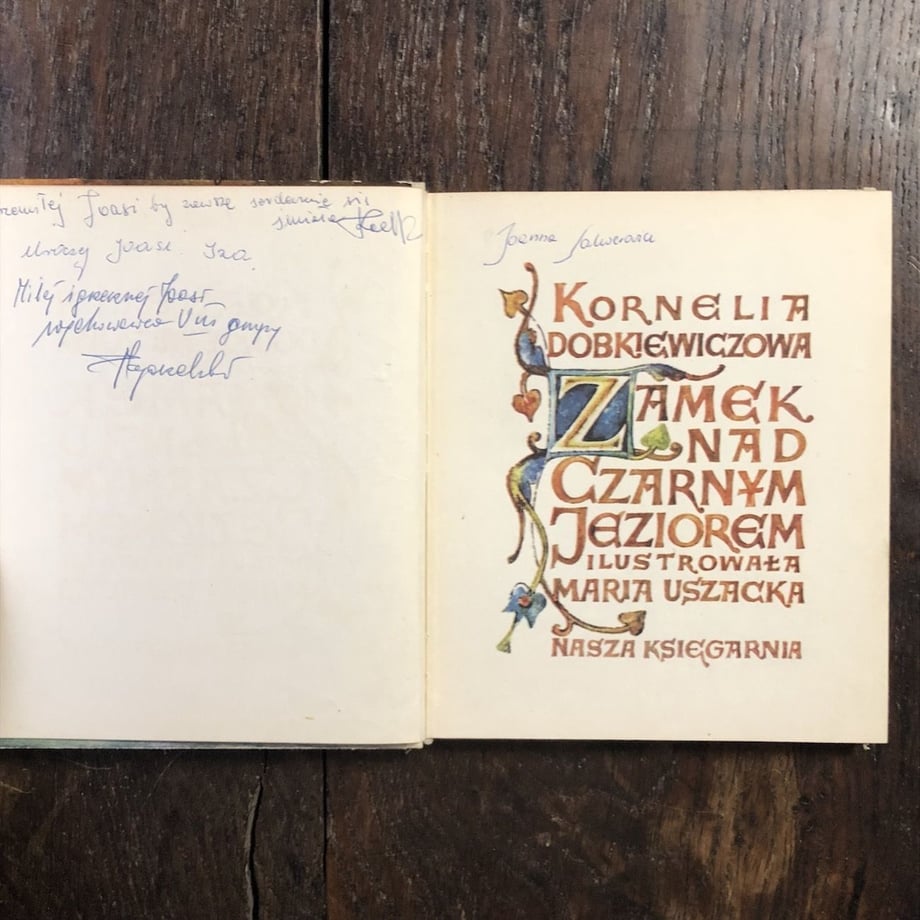 Joasi by zawsze serdecznie się
śmiała
uroczej Joasi. Iza
Miłej i grzecznej Joasi
wychowawca VIII grupy
Joanna
KORNELIA
DOBKIEWICZOWA
ZAMEK
NAD
CZARNYM
JEZIOREM
ILUSTROWAŁA
MARIA USZACKA
NASZA KSIĘGARNIA